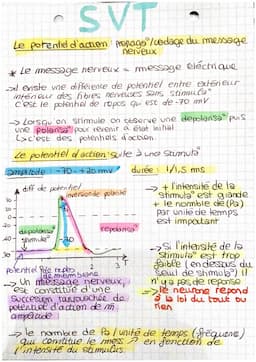 SVT
Le potentiel d'action : propag°/codage du message
nerveux
* Le message nerveux = message électrique
→ il existe une différence de potentiel entre extérieur
intérieur des fibres nerveuses sans stimula°
c'est le potentiel de repos qui est de -70 mV
→ Lorsqu'on stimule on observe une dépolarisa° puis
une polarisa° pour revenir à état initial
↳ c'est des potentiels d'action.
Le potentiel d'action : suite à une stimula°
amplitude -70 → +30 mV durée : 1/1,5 ms
diff de potentiel
inversion de polarité
dépolarisa°
stimula°
repolarisa°
-70
1 2 3 T
potentiel de repos
de membrane
→ Un message nerveux,
est constitué d'une
succession rapprochée de
potentiel d'action de m̂
amplitude
→ + l'intensité de la
stimula° est grande
+ le nombre de (Pa)
par unité de temps
est important
→ si l'intensité de la
stimula° est trop
faible (en dessous du
seuil de stimula°) il
n'y a pas de réponse
→ le neurone répond
à la loi du tout ou
rien
→ le nombre de Pa / unité de temps (fréquence)
qui constitue le mess ↗ en fonction de
l'intensité du stimulus